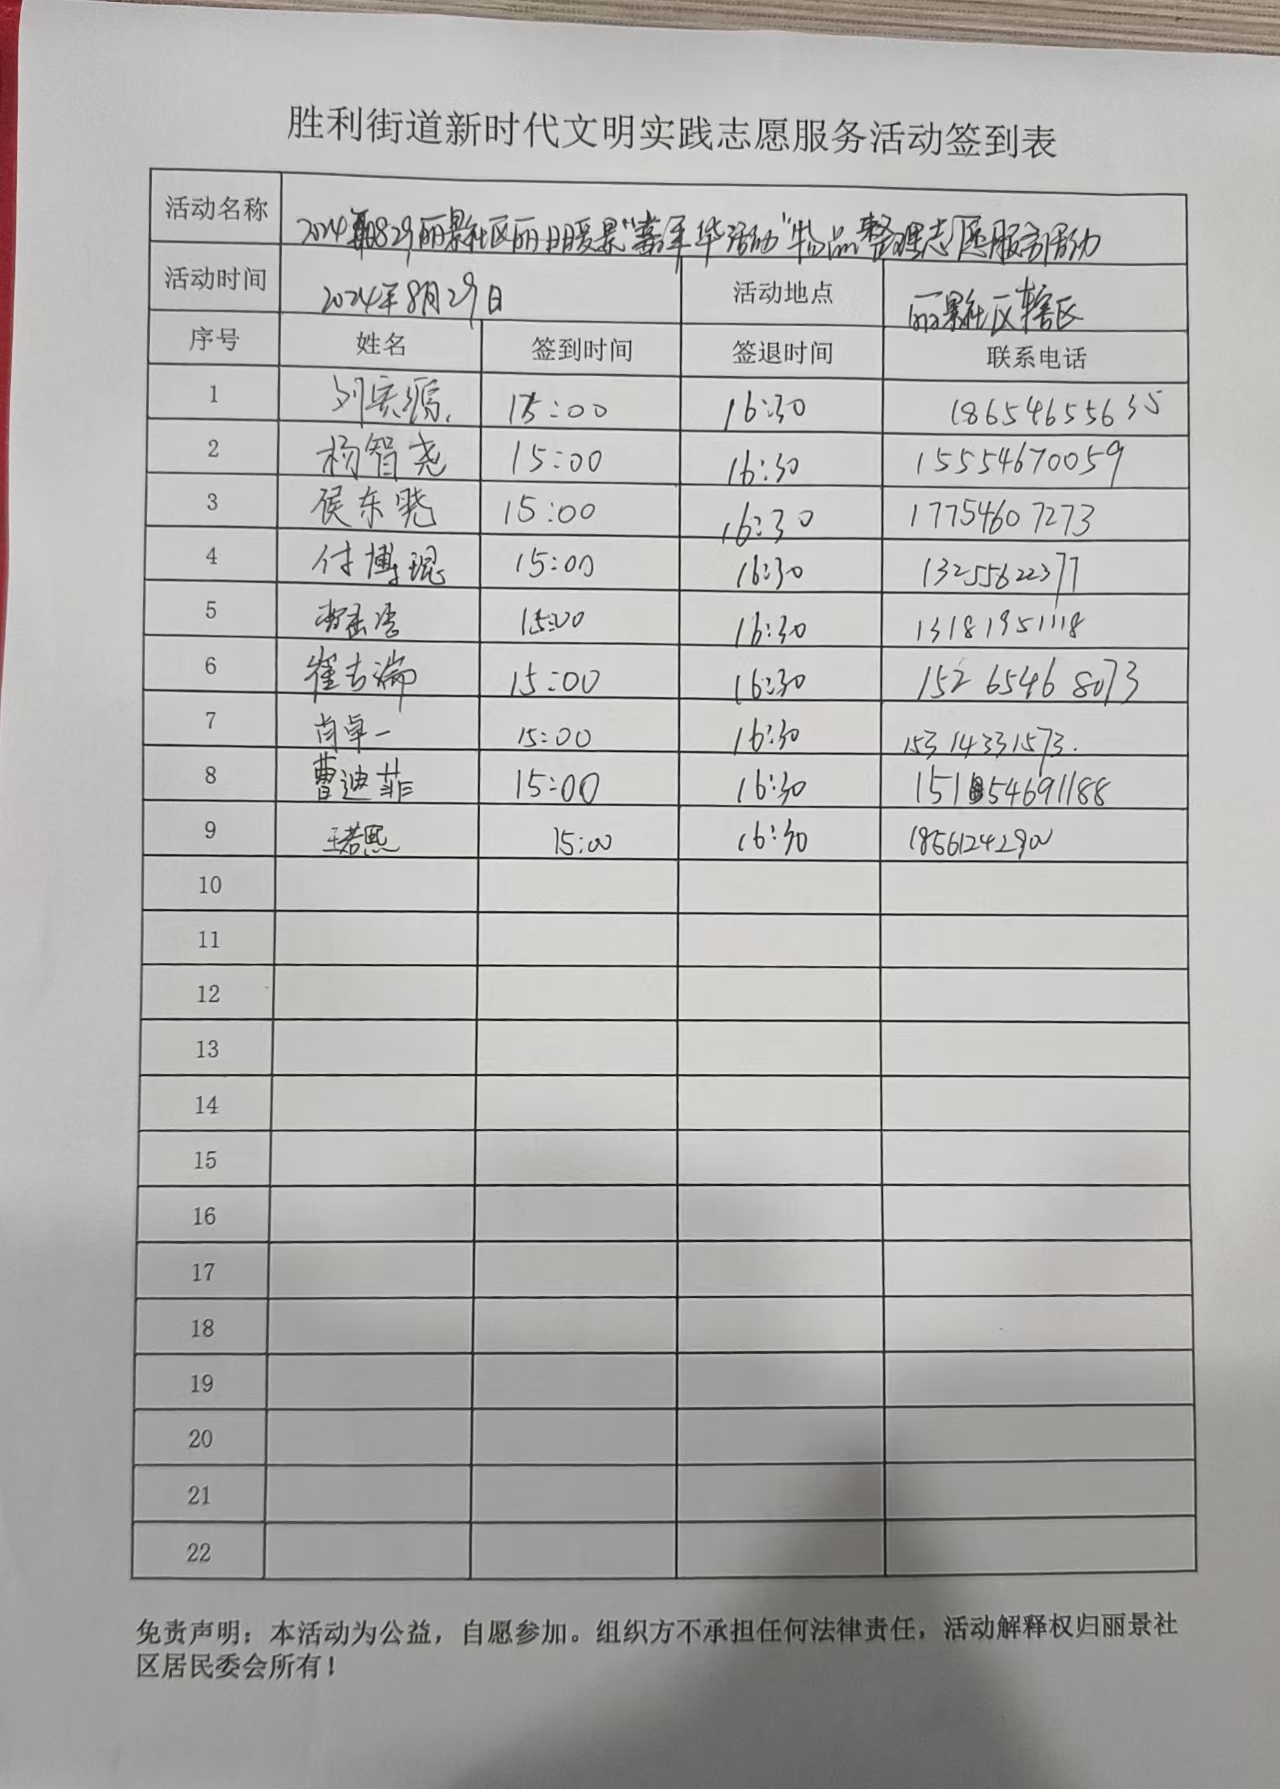 胜利街道新时代文明实践志愿服务活动签到表
活动名称 2024年0829丽景社区丽日暖景"嘉年华活动"物品整理志愿服务活动
活动时间 2024年8月29日 活动地点 丽景社区辖区
序号 姓名 签到时间 签退时间 联系电话
1 15:00 16:30 18654655635
2 杨智尧 15:00 16:30 15554670059
3 侯东晓 15:00 16:30 17754607273
4 付博琨 15:00 16:30 13255622377
5 15:00 16:30 13181951118
6 崔吉瑞 15:00 16:30 15265468073
7 肖卓一 15:00 16:30 15314331573.
8 曹迪菲 15:00 16:30 15154691188
9 王若熙 15:00 16:30
10
11
12
13
14
15
16
17
18
19
20
21
22
免责声明：本活动为公益，自愿参加。组织方不承担任何法律责任，活动解释权归丽景社
区居民委会所有！